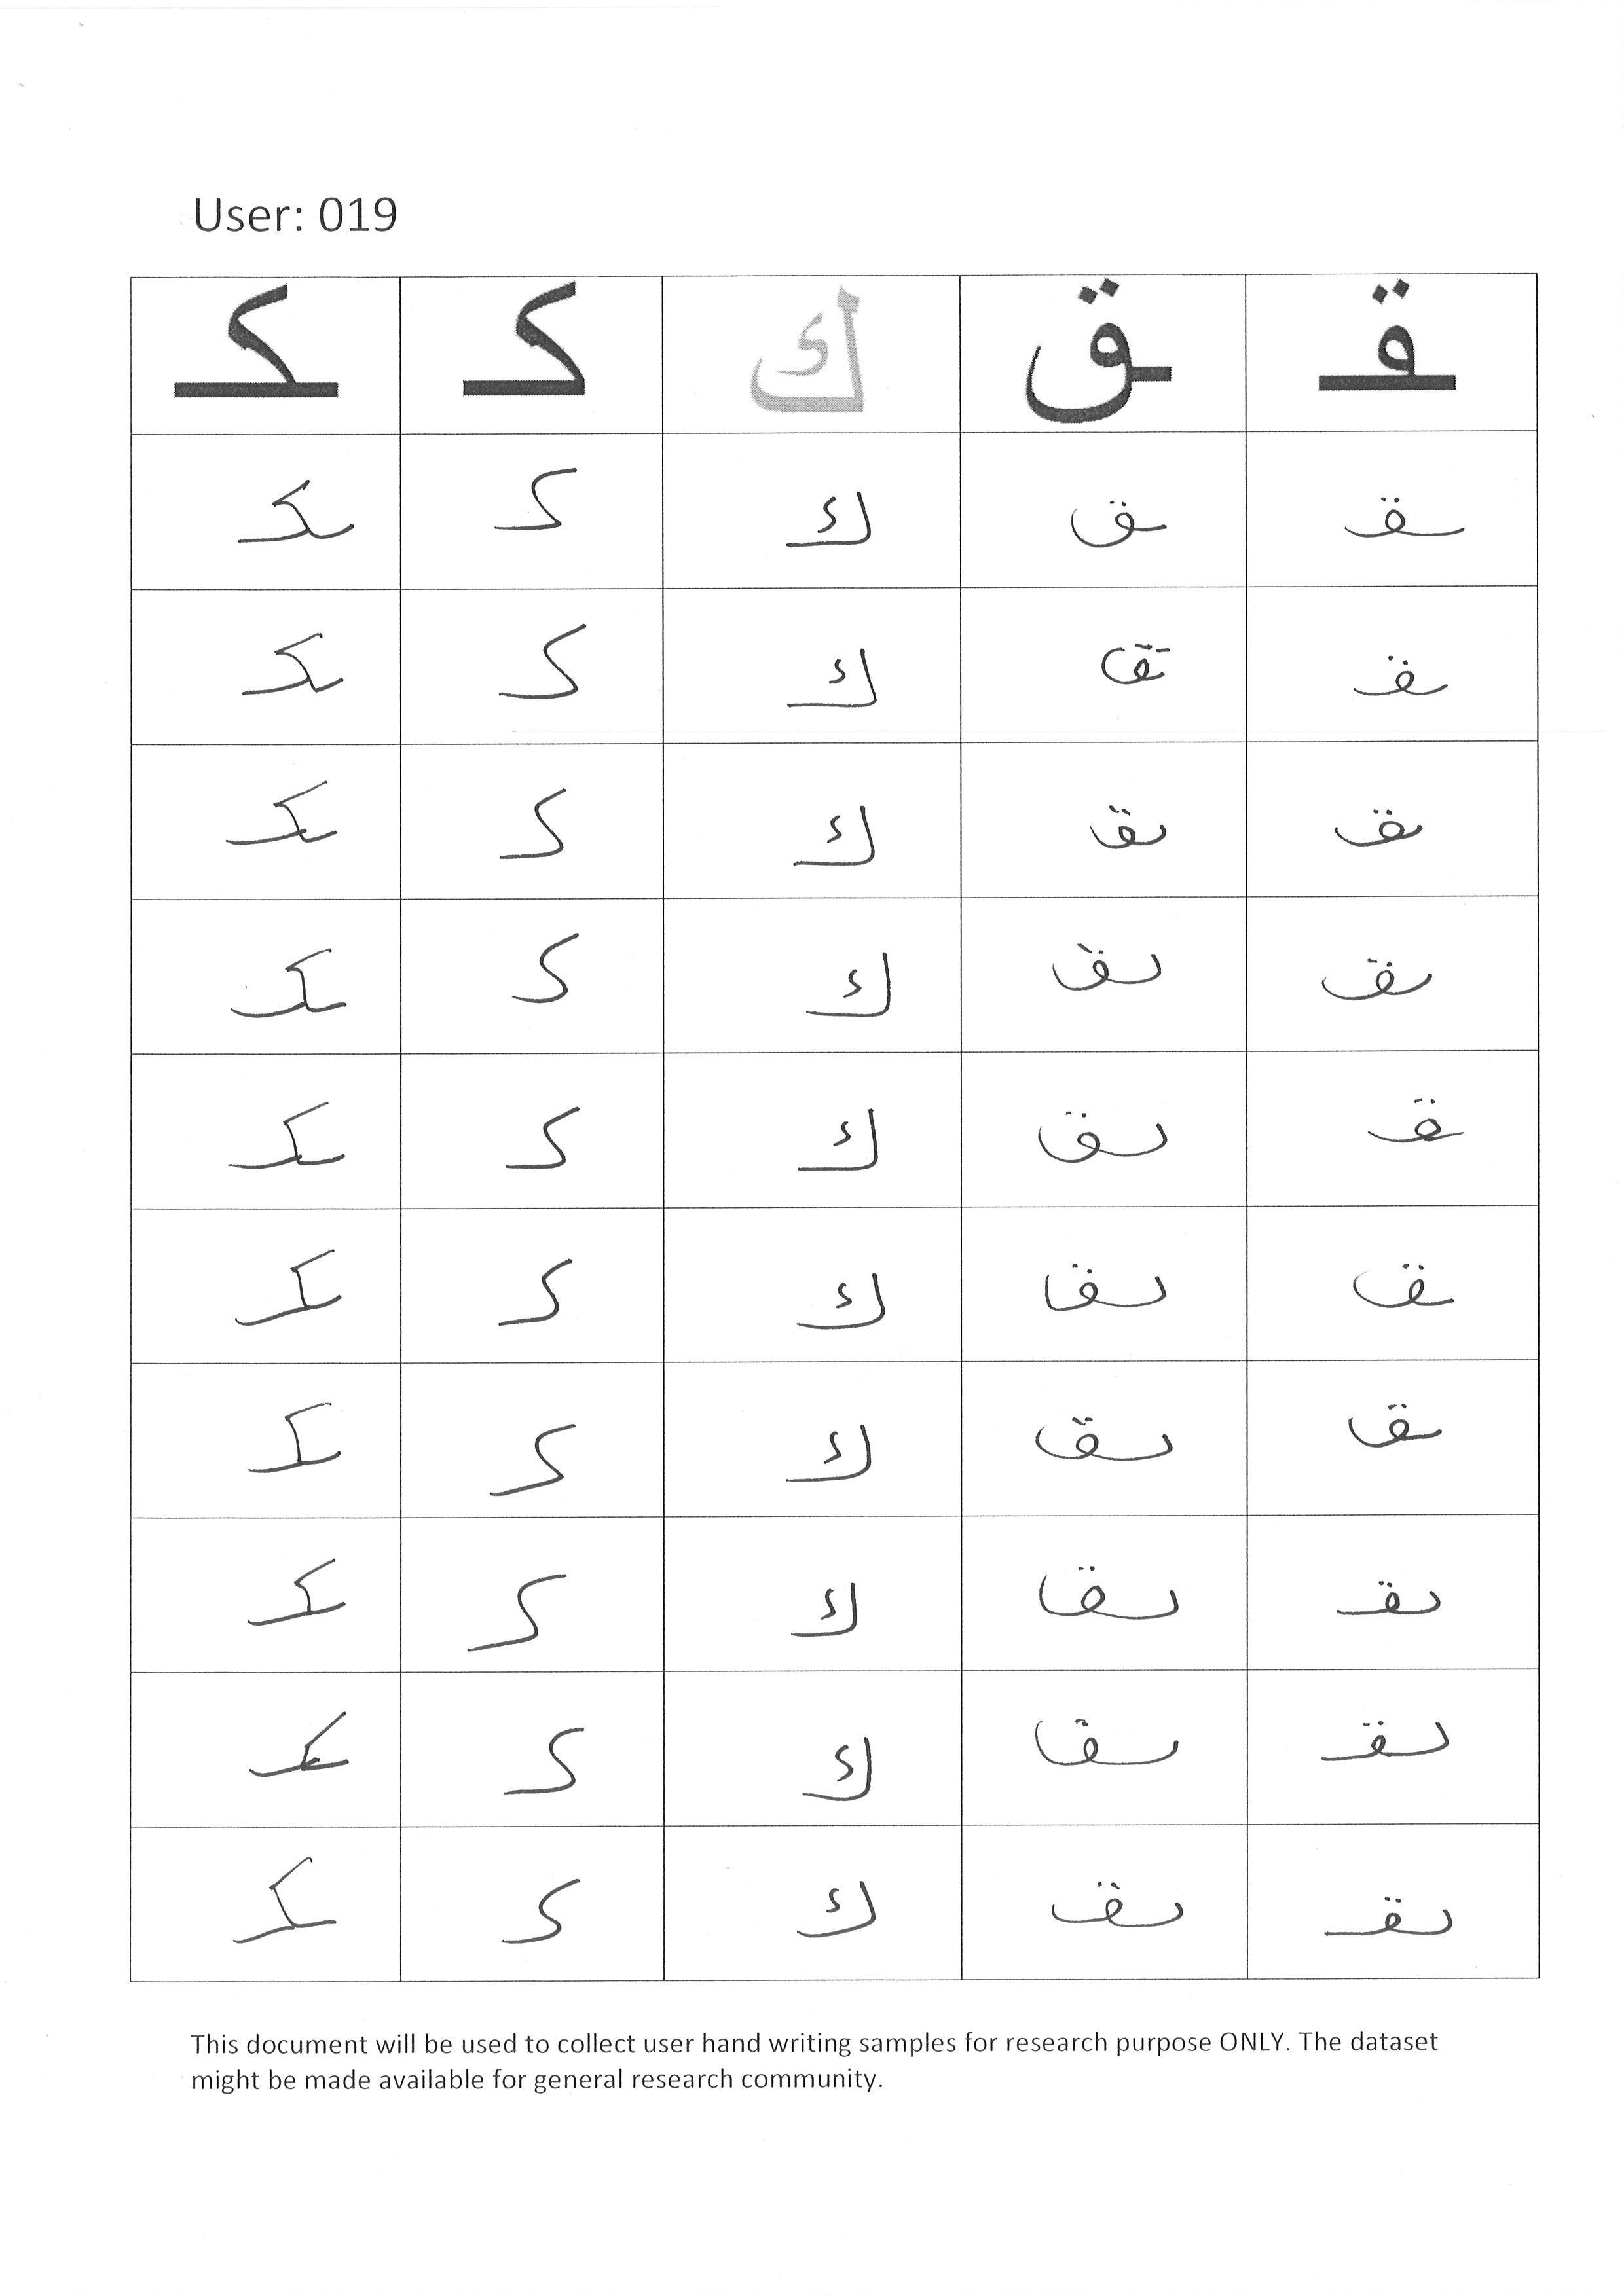 User: 019
ـكـ كـ ك ـق ـقـ
ـكـ كـ ك ـق ـقـ
ـكـ كـ ك ـق ـقـ
ـكـ كـ ك ـق ـقـ
ـكـ كـ ك ـق ـقـ
ـكـ كـ ك ـق ـقـ
ـكـ كـ ك ـق ـقـ
ـكـ كـ ك ـق ـقـ
ـكـ كـ ك ـق ـقـ
ـكـ كـ ك ـق ـقـ
ـكـ كـ ك ـق ـقـ
This document will be used to collect user hand writing samples for research purpose ONLY. The dataset
might be made available for general research community.